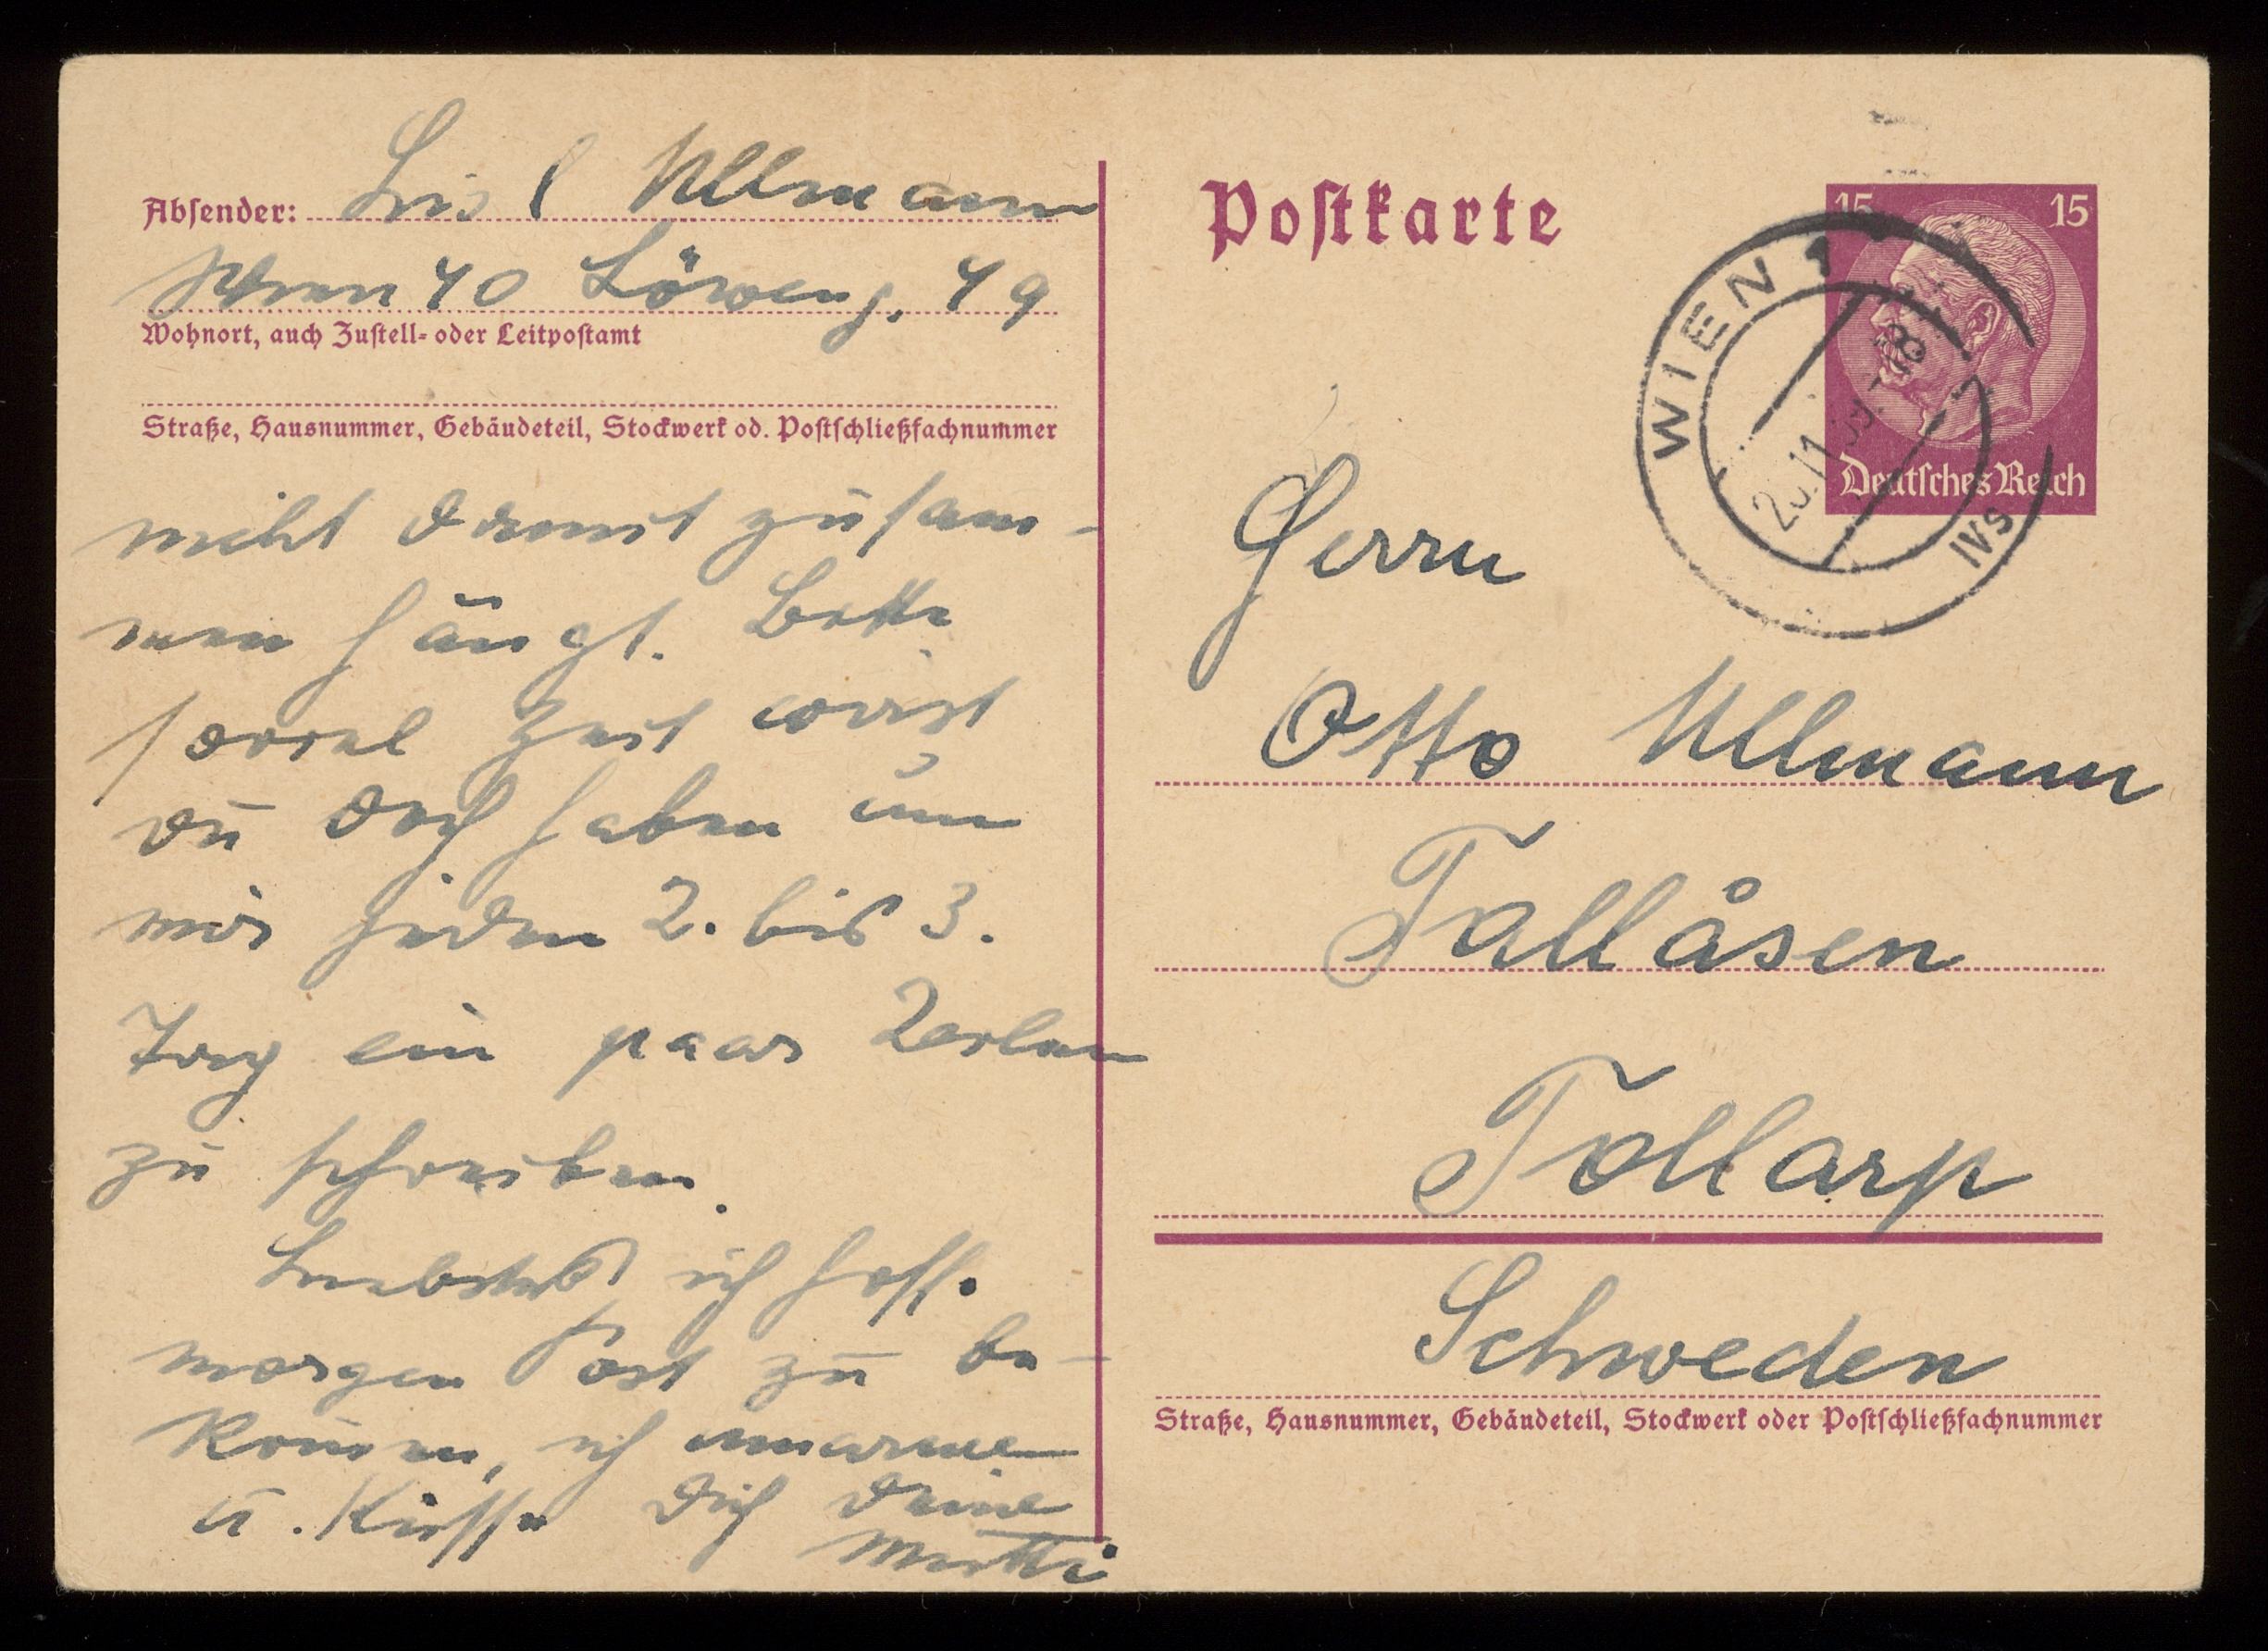 Absender: Lisl Ullmann
Wien 40 Löweng. 49
Wohnort, auch Zustell- oder Leitpostamt
Straße, Hausnummer, Gebäudeteil, Stockwerk od. Postschließfachnummer
nicht damit zusam-
men hängt. Bitte
soviel Zeit wirst
du doch haben um
mir jeden 2. bis 3.
Tag ein paar Zeilen
zu schreiben.
ich hoffe
morgen Post zu be-
kommen, ich umarme
u. Küsse Dich Deine
Mutti
Postkarte
15 15
Deutsches Reich
WIEN 1
11.39.-18
Herrn
Otto Ullmann
Tallåsen
Tollarp
Schweden
Straße, Hausnummer, Gebäudeteil, Stockwerk oder Postschließfachnummer